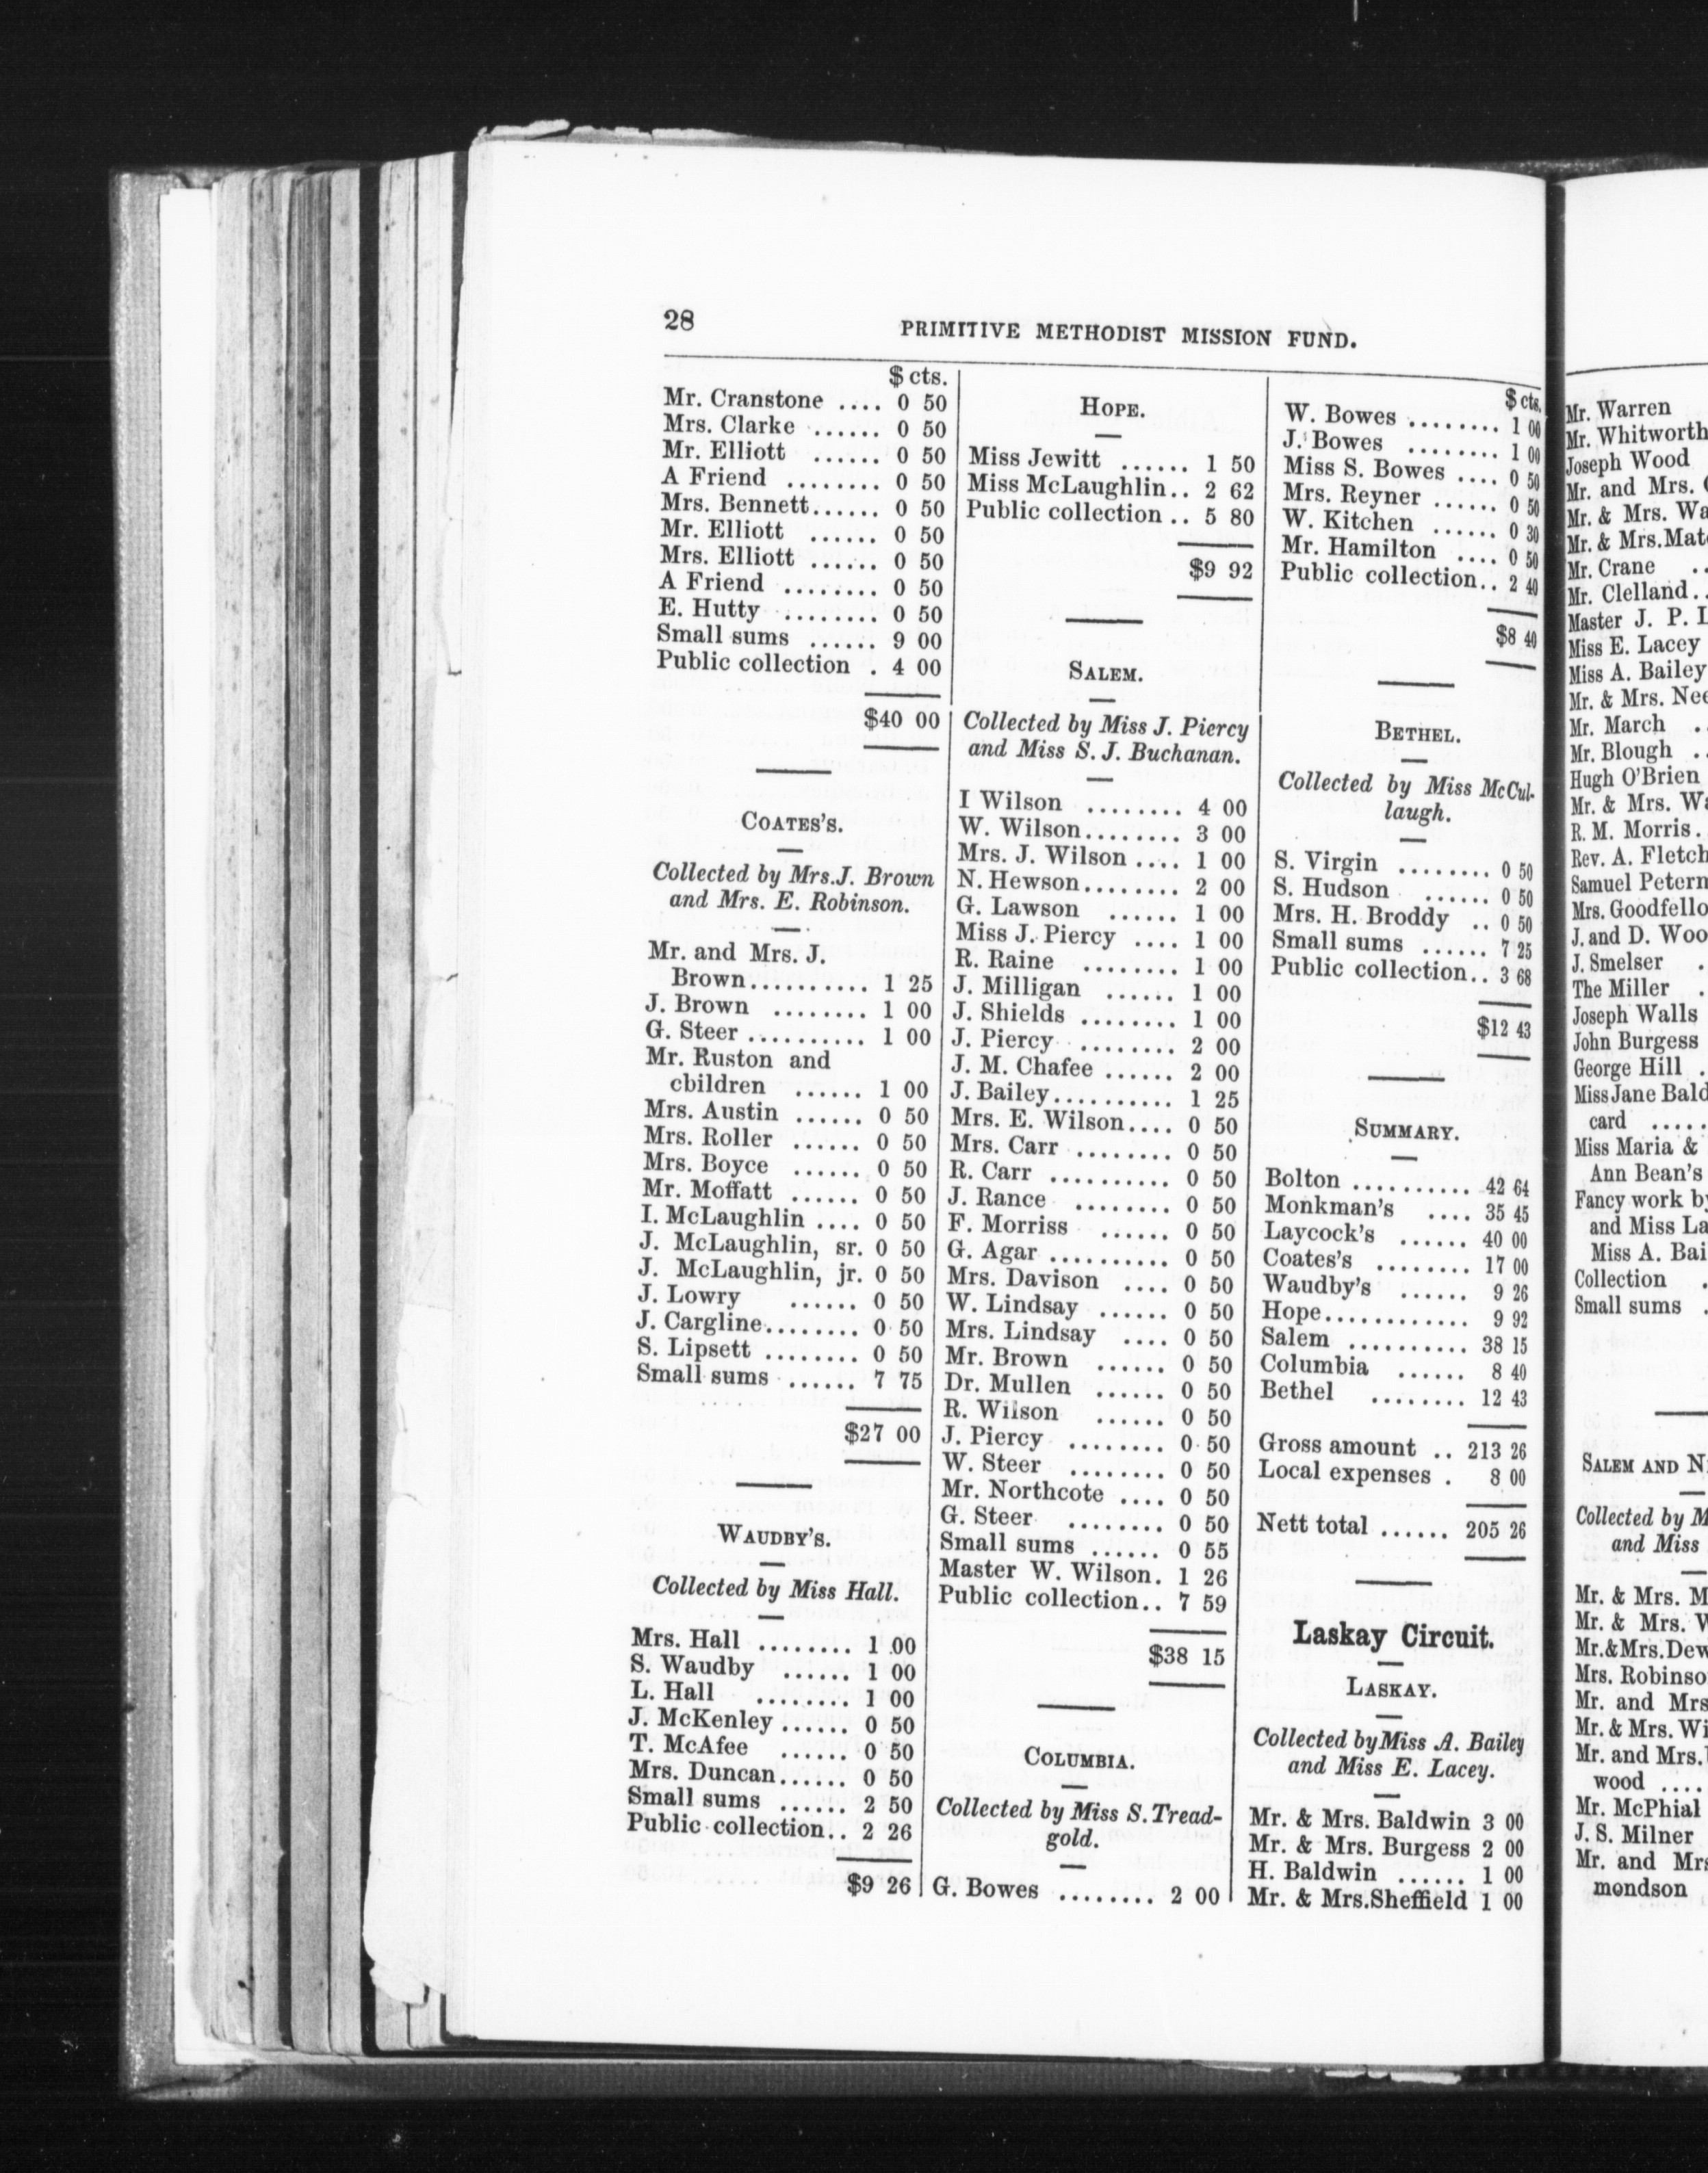 28
PRIMITIVE METHODIST MISSION FUND.
$ cts.
Mr. Cranstone .... 0 50
Mrs. Clarke ...... 0 50
Mr. Elliott ...... 0 50
A Friend ........ 0 50
Mrs. Bennett...... 0 50
Mr. Elliott ...... 0 50
Mrs. Elliott ...... 0 50
A Friend ........ 0 50
E. Hutty ........ 0 50
Small sums ...... 9 00
Public collection . 4 00
$40 00
COATES'S.
Collected by Mrs. J. Brown
and Mrs. E. Robinson.
Mr. and Mrs. J.
Brown.......... 1 25
J. Brown ........ 1 00
G. Steer .......... 1 00
Mr. Ruston and
children ...... 1 00
Mrs. Austin ...... 0 50
Mrs. Roller ...... 0 50
Mrs. Boyce ...... 0 50
Mr. Moffatt ...... 0 50
I. McLaughlin .... 0 50
J. McLaughlin, sr. 0 50
J. McLaughlin, jr. 0 50
J. Lowry ...... 0 50
J. Cargline........ 0 50
S. Lipsett ........ 0 50
Small sums ...... 7 75
$27 00
WAUDBY'S.
Collected by Miss Hall.
Mrs. Hall ........ 1 00
S. Waudby ...... 1 00
L. Hall ........ 1 00
J. McKenley ...... 0 50
T. McAfee ...... 0 50
Mrs. Duncan...... 0 50
Small sums ...... 2 50
Public collection.. 2 26
$9 26
HOPE.
Miss Jewitt ...... 1 50
Miss McLaughlin.. 2 62
Public collection .. 5 80
$9 92
SALEM.
Collected by Miss J. Piercy
and Miss S. J. Buchanan.
I Wilson ........ 4 00
W. Wilson........ 3 00
Mrs. J. Wilson .... 1 00
N. Hewson........ 2 00
G. Lawson ...... 1 00
Miss J. Piercy .... 1 00
R. Raine ........ 1 00
J. Milligan ...... 1 00
J. Shields ........ 1 00
J. Piercy ........ 2 00
J. M. Chafee ...... 2 00
J. Bailey.......... 1 25
Mrs. E. Wilson.... 0 50
Mrs. Carr ........ 0 50
R. Carr .......... 0 50
J. Rance ........ 0 50
F. Morriss ...... 0 50
G. Agar .......... 0 50
Mrs. Davison .... 0 50
W. Lindsay ...... 0 50
Mrs. Lindsay .... 0 50
Mr. Brown ...... 0 50
Dr. Mullen ...... 0 50
R. Wilson ...... 0 50
J. Piercy ........ 0 50
W. Steer ........ 0 50
Mr. Northcote .... 0 50
G. Steer ........ 0 50
Small sums ...... 0 55
Master W. Wilson. 1 26
Public collection.. 7 59
$38 15
COLUMBIA.
Collected by Miss S. Tread-
gold.
G. Bowes ........ 2 00
$ cts.
W. Bowes ........ 1 00
J. Bowes ........ 1 00
Miss S. Bowes .... 0 50
Mrs. Reyner ...... 0 50
W. Kitchen ...... 0 30
Mr. Hamilton .... 0 50
Public collection.. 2 40
$8 40
BETHEL.
Collected by Miss McCul-
laugh.
S. Virgin ........ 0 50
S. Hudson ...... 0 50
Mrs. H. Broddy .. 0 50
Small sums ...... 7 25
Public collection.. 3 68
$12 43
SUMMARY.
Bolton .......... 42 64
Monkman's .... 35 45
Laycock's ...... 40 00
Coates's ........ 17 00
Waudby's ...... 9 26
Hope............ 9 92
Salem .......... 38 15
Columbia ...... 8 40
Bethel ........ 12 43
Gross amount .. 213 26
Local expenses . 8 00
Nett total ...... 205 26
Laskay Circuit.
LASKAY.
Collected by Miss A. Bailey
and Miss E. Lacey.
Mr. & Mrs. Baldwin 3 00
Mr. & Mrs. Burgess 2 00
H. Baldwin ...... 1 00
Mr. & Mrs. Sheffield 1 00
Mr. Warren
Mr. Whitworth
Joseph Wood
Mr. and Mrs.
Mr. & Mrs. Wa
Mr. & Mrs. Mat
Mr. Crane ..
Mr. Clelland..
Master J. P. L
Miss E. Lacey
Miss A. Bailey
Mr. & Mrs. Nee
Mr. March ..
Mr. Blough ..
Hugh O'Brien
Mr. & Mrs. Wa
R. M. Morris.
Rev. A. Fletch
Samuel Petern
Mrs. Goodfello
J. and D. Woo
J. Smelser .
The Miller .
Joseph Walls
John Burgess
George Hill .
Miss Jane Bald
card .....
Miss Maria &
Ann Bean's
Fancy work by
and Miss La
Miss A. Bai
Collection .
Small sums .
SALEM AND N
Collected by M
and Miss
Mr. & Mrs. M
Mr. & Mrs. W
Mr. & Mrs. Dew
Mrs. Robinso
Mr. and Mrs
Mr. & Mrs. Wi
Mr. and Mrs.
wood ....
Mr. McPhial
J. S. Milner
Mr. and Mrs
mondson